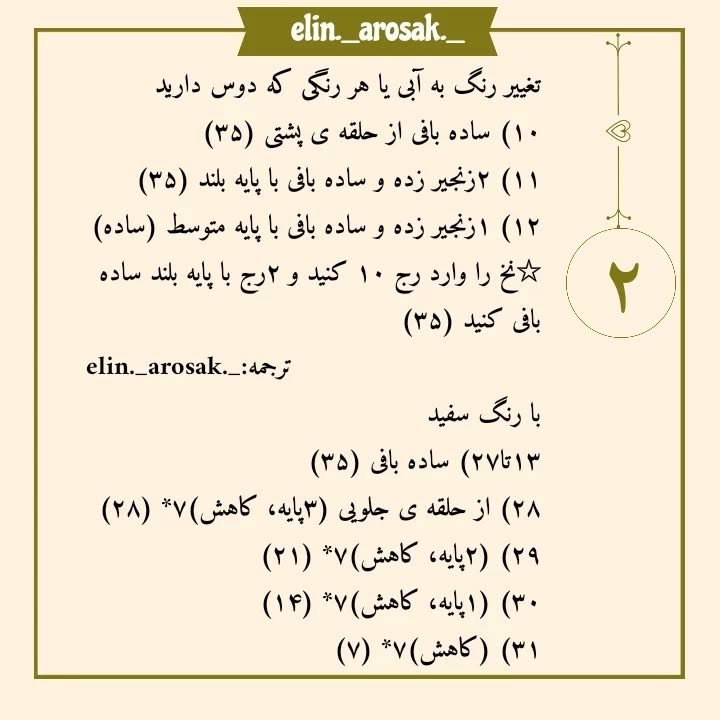 elin._arosak._
تغییر رنگ به آبی یا هر رنگی که دوس دارید
۱۰) ساده بافی از حلقه ی پشتی (۳۵)
۱۱) ۲زنجیر زده و ساده بافی با پایه بلند (۳۵)
۱۲) ۱زنجیر زده و ساده بافی با پایه متوسط (ساده)
☆نخ را وارد رج ۱۰ کنید و ۲رج با پایه بلند ساده
بافی کنید (۳۵)
ترجمه:_.elin._arosak
با رنگ سفید
۱۳تا۲۷) ساده بافی (۳۵)
۲۸) از حلقه ی جلویی (۳پایه، کاهش)۷* (۲۸)
۲۹) (۲پایه، کاهش)۷* (۲۱)
۳۰) (۱پایه، کاهش)۷* (۱۴)
۳۱) (کاهش)۷* (۷)
۲